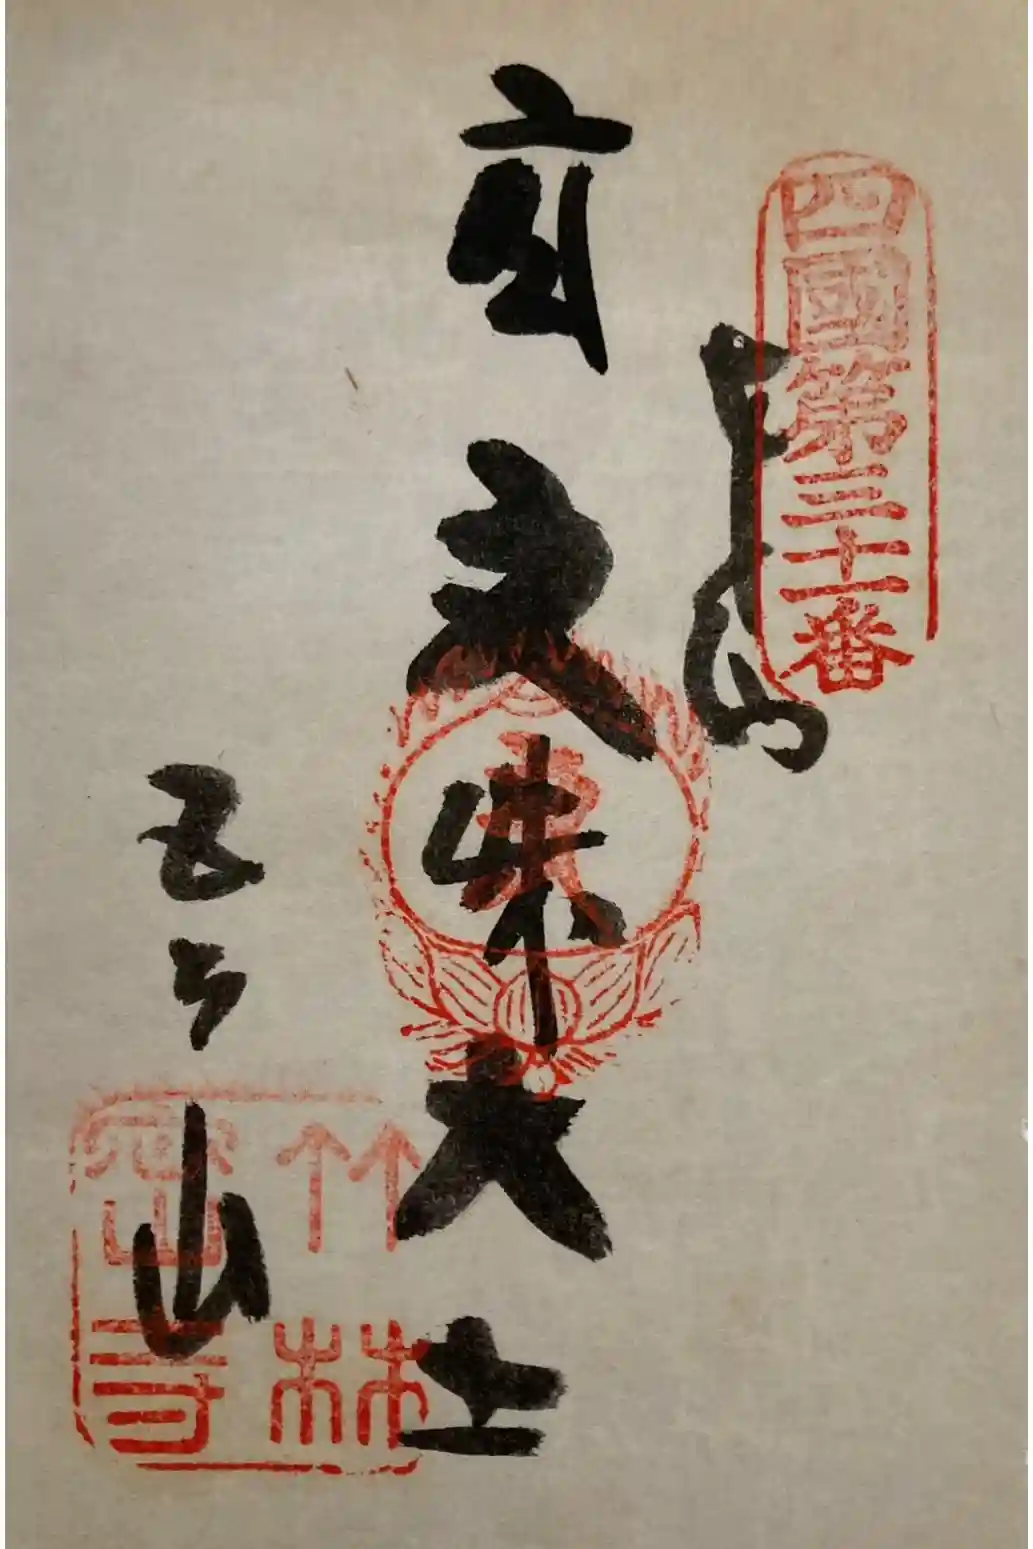 四國第三十一番
文殊大士
五台山
竹林
密寺